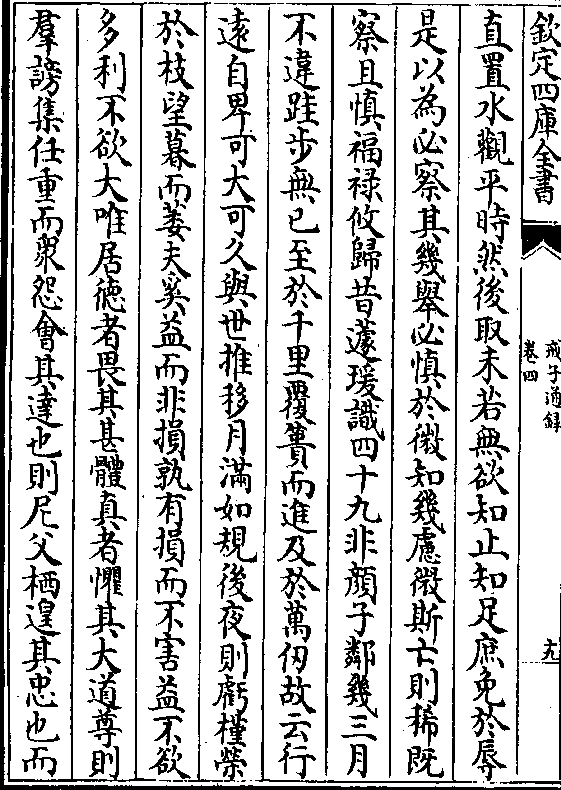 欽定四庫全書
戒子通録
卷四
九
直置水觀平時然後取未若無欲知止知足庶免於辱
是以為必察其幾舉必慎於微知幾慮微斯亡則稀既
察且慎福禄攸歸昔蘧瑗識四十九非顔子鄰幾三月
不違跬步無已至於千里覆簣而進及於萬仞故云行
遠自卑可大可久與世推移月滿如規後夜則虧槿榮
於枝望暮而萎夫奚益而非損孰有損而不害益不欲
多利不欲大唯居徳者畏其甚體真者懼其大道尊則
羣謗集任重而衆怨會其達也則尼父栖遑其忠也而